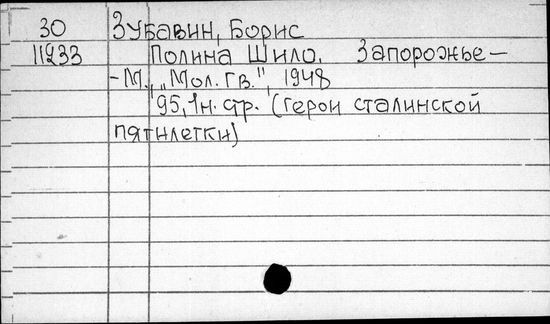 30 Зубавин, Борис
11233 Полина Шило. Запорожье –
– М., „Мол. гв.", 1948
95, 1н. стр. (Герои сталинской
пятилетки)